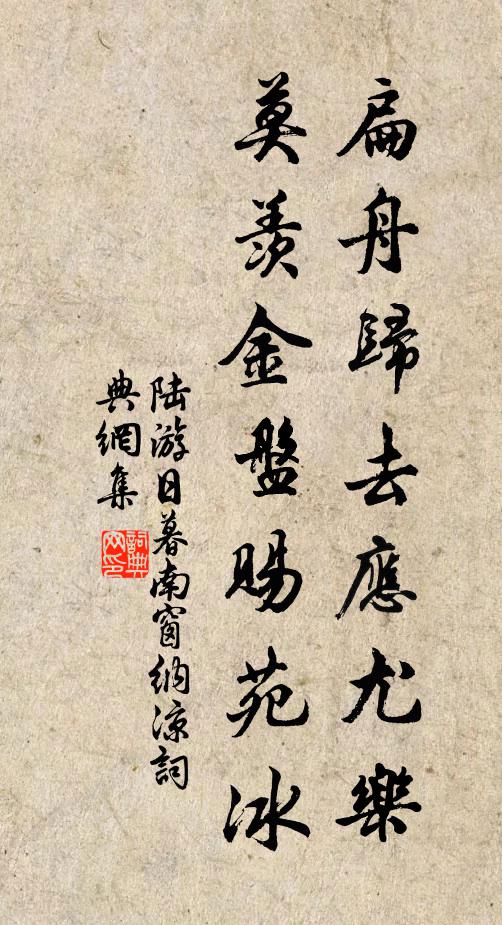 扁舟歸去應尤樂
莫羨金盤賜苑冰
陆游日暮南窗納涼詞
典網集
詞典网印